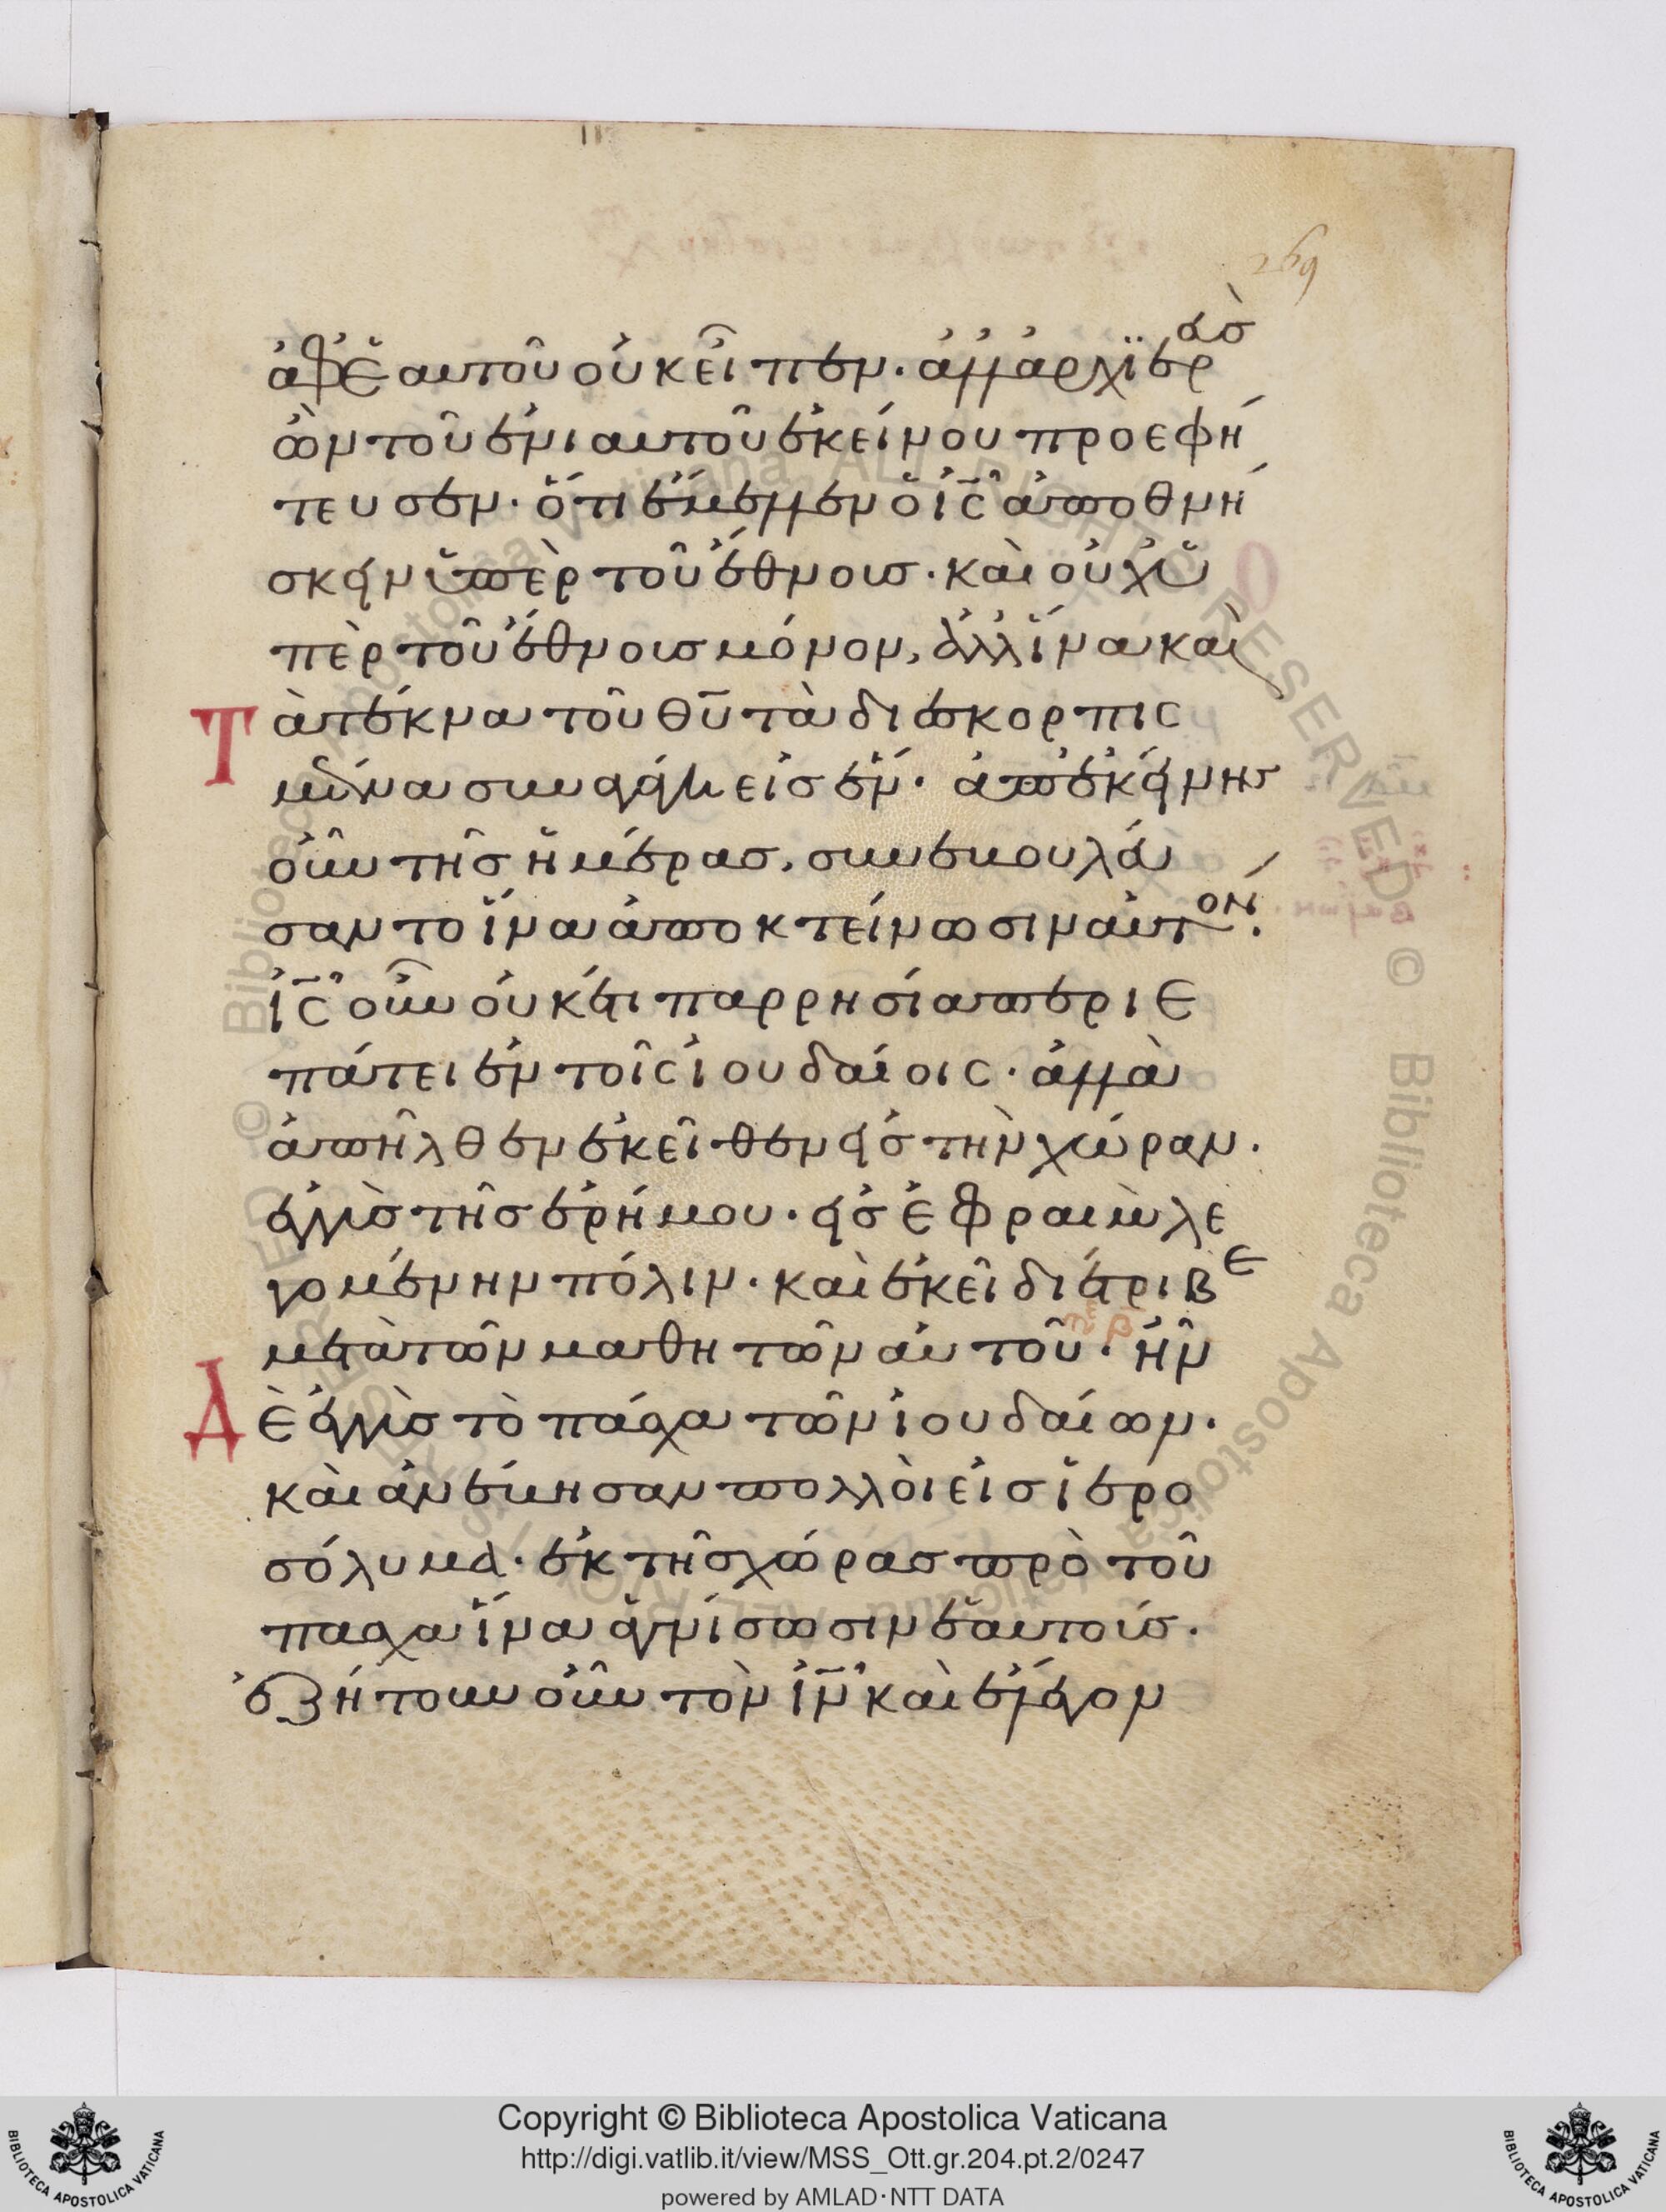 269
ἀφ' ἑαυτοῦ οὐκ εἶπεν· ἀλλ' ἀρχϊερεὺσ
ὢν τοῦ ἐνιαυτοῦ ἐκείνου προεφή
τευσεν· ὅτι ἔμελλεν ὁ ἰ̅ς̅ ἀποθνή
σκειν ὑπὲρ τοῦ ἔθνουσ· καὶ οὐχ ὑ
πὲρ τοῦ ἔθνουσ μόνον, ἀλλ' ἵνα καὶ
Τὰ τέκνα τοῦ θ̅υ̅ τὰ διασκορπισ
μένα συναγάγη εἰσ ἕν· ἀπ' ἐκείνησ
οὖν τῆσ ἡμέρασ, συνεβουλεύ
σαντο ἵνα ἀποκτείνωσιν αὐτόν·
ἰ̅ς̅ οὖν οὐκέτι παρρησία περιε
πάτει ἐν τοῖς ἰουδαίοις· ἀλλὰ
ἀπῆλθεν ἐκεῖθεν εἰσ τὴν χώραν·
ἐγγὺσ τῆσ ἐρήμου· εἰσ ἐφραὶμ λε
γομένην πόλιν· καὶ ἐκεῖ διέτριβε
μετὰ τῶν μαθητῶν αὐτοῦ· ἦν
Δὲ ἐγγὺσ τὸ πάσχα τῶν ἰουδαίων·
καὶ ἀνέβησαν πολλοὶ εἰσ ἱερο
σόλυμα· ἐκ τῆσ χώρασ πρὸ τοῦ
πασχα ἵνα ἁγνίσωσιν ἑαυτούσ·
ἐζήτουν οὖν τὸν ἰ̅ν̅ καὶ ἔλεγον
Copyright © Biblioteca Apostolica Vaticana
http://digi.vatlib.it/view/MSS_Ott.gr.204.pt.2/0247
powered by AMLAD·NTT DATA
BIBLIOTECA APOSTOLICA VATICANA
BIBLIOTECA APOSTOLICA VATICANA